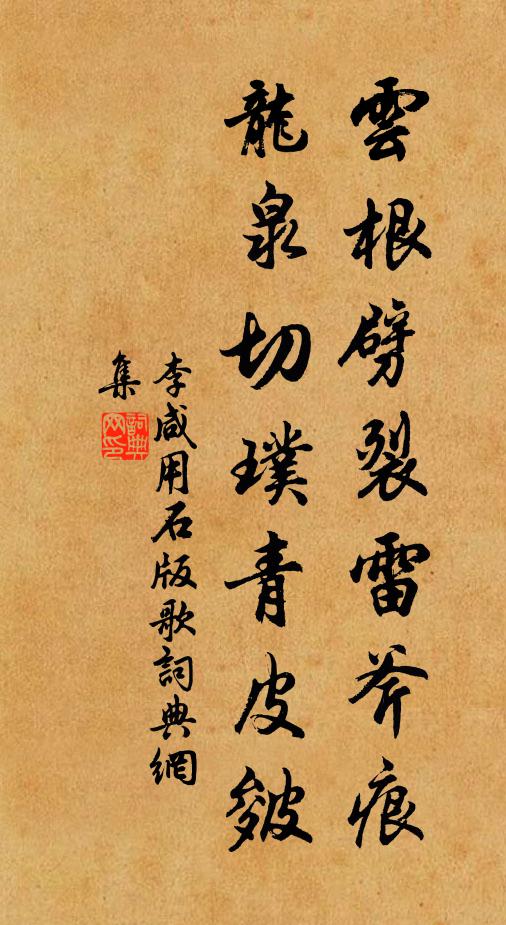 雲根劈裂雷斧痕
龍泉切璞青皮皴
李咸用石版歌詞典網
集
詞典網印